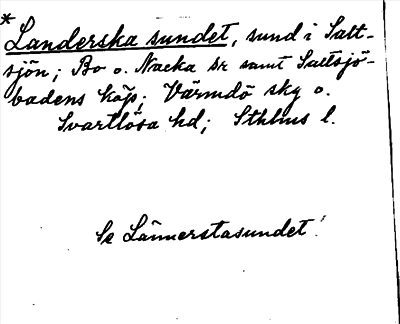 * Landerska sundet, sund i Salt-
sjön; Bo o. Nacka sr samt Saltsjö-
badens köp; Värmdö sky o.
Svartlösa hd; Sthlms l.
Se Lännerstasundet!